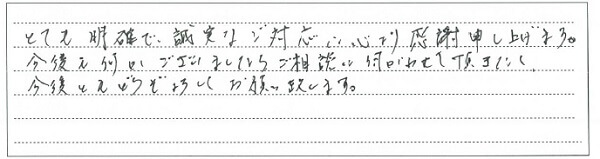 とても明確で、誠実なご対応に心より感謝申し上げます。
今後も何かございましたらご相談に伺わせて頂きたく、
今後ともどうぞよろしくお願い致します。